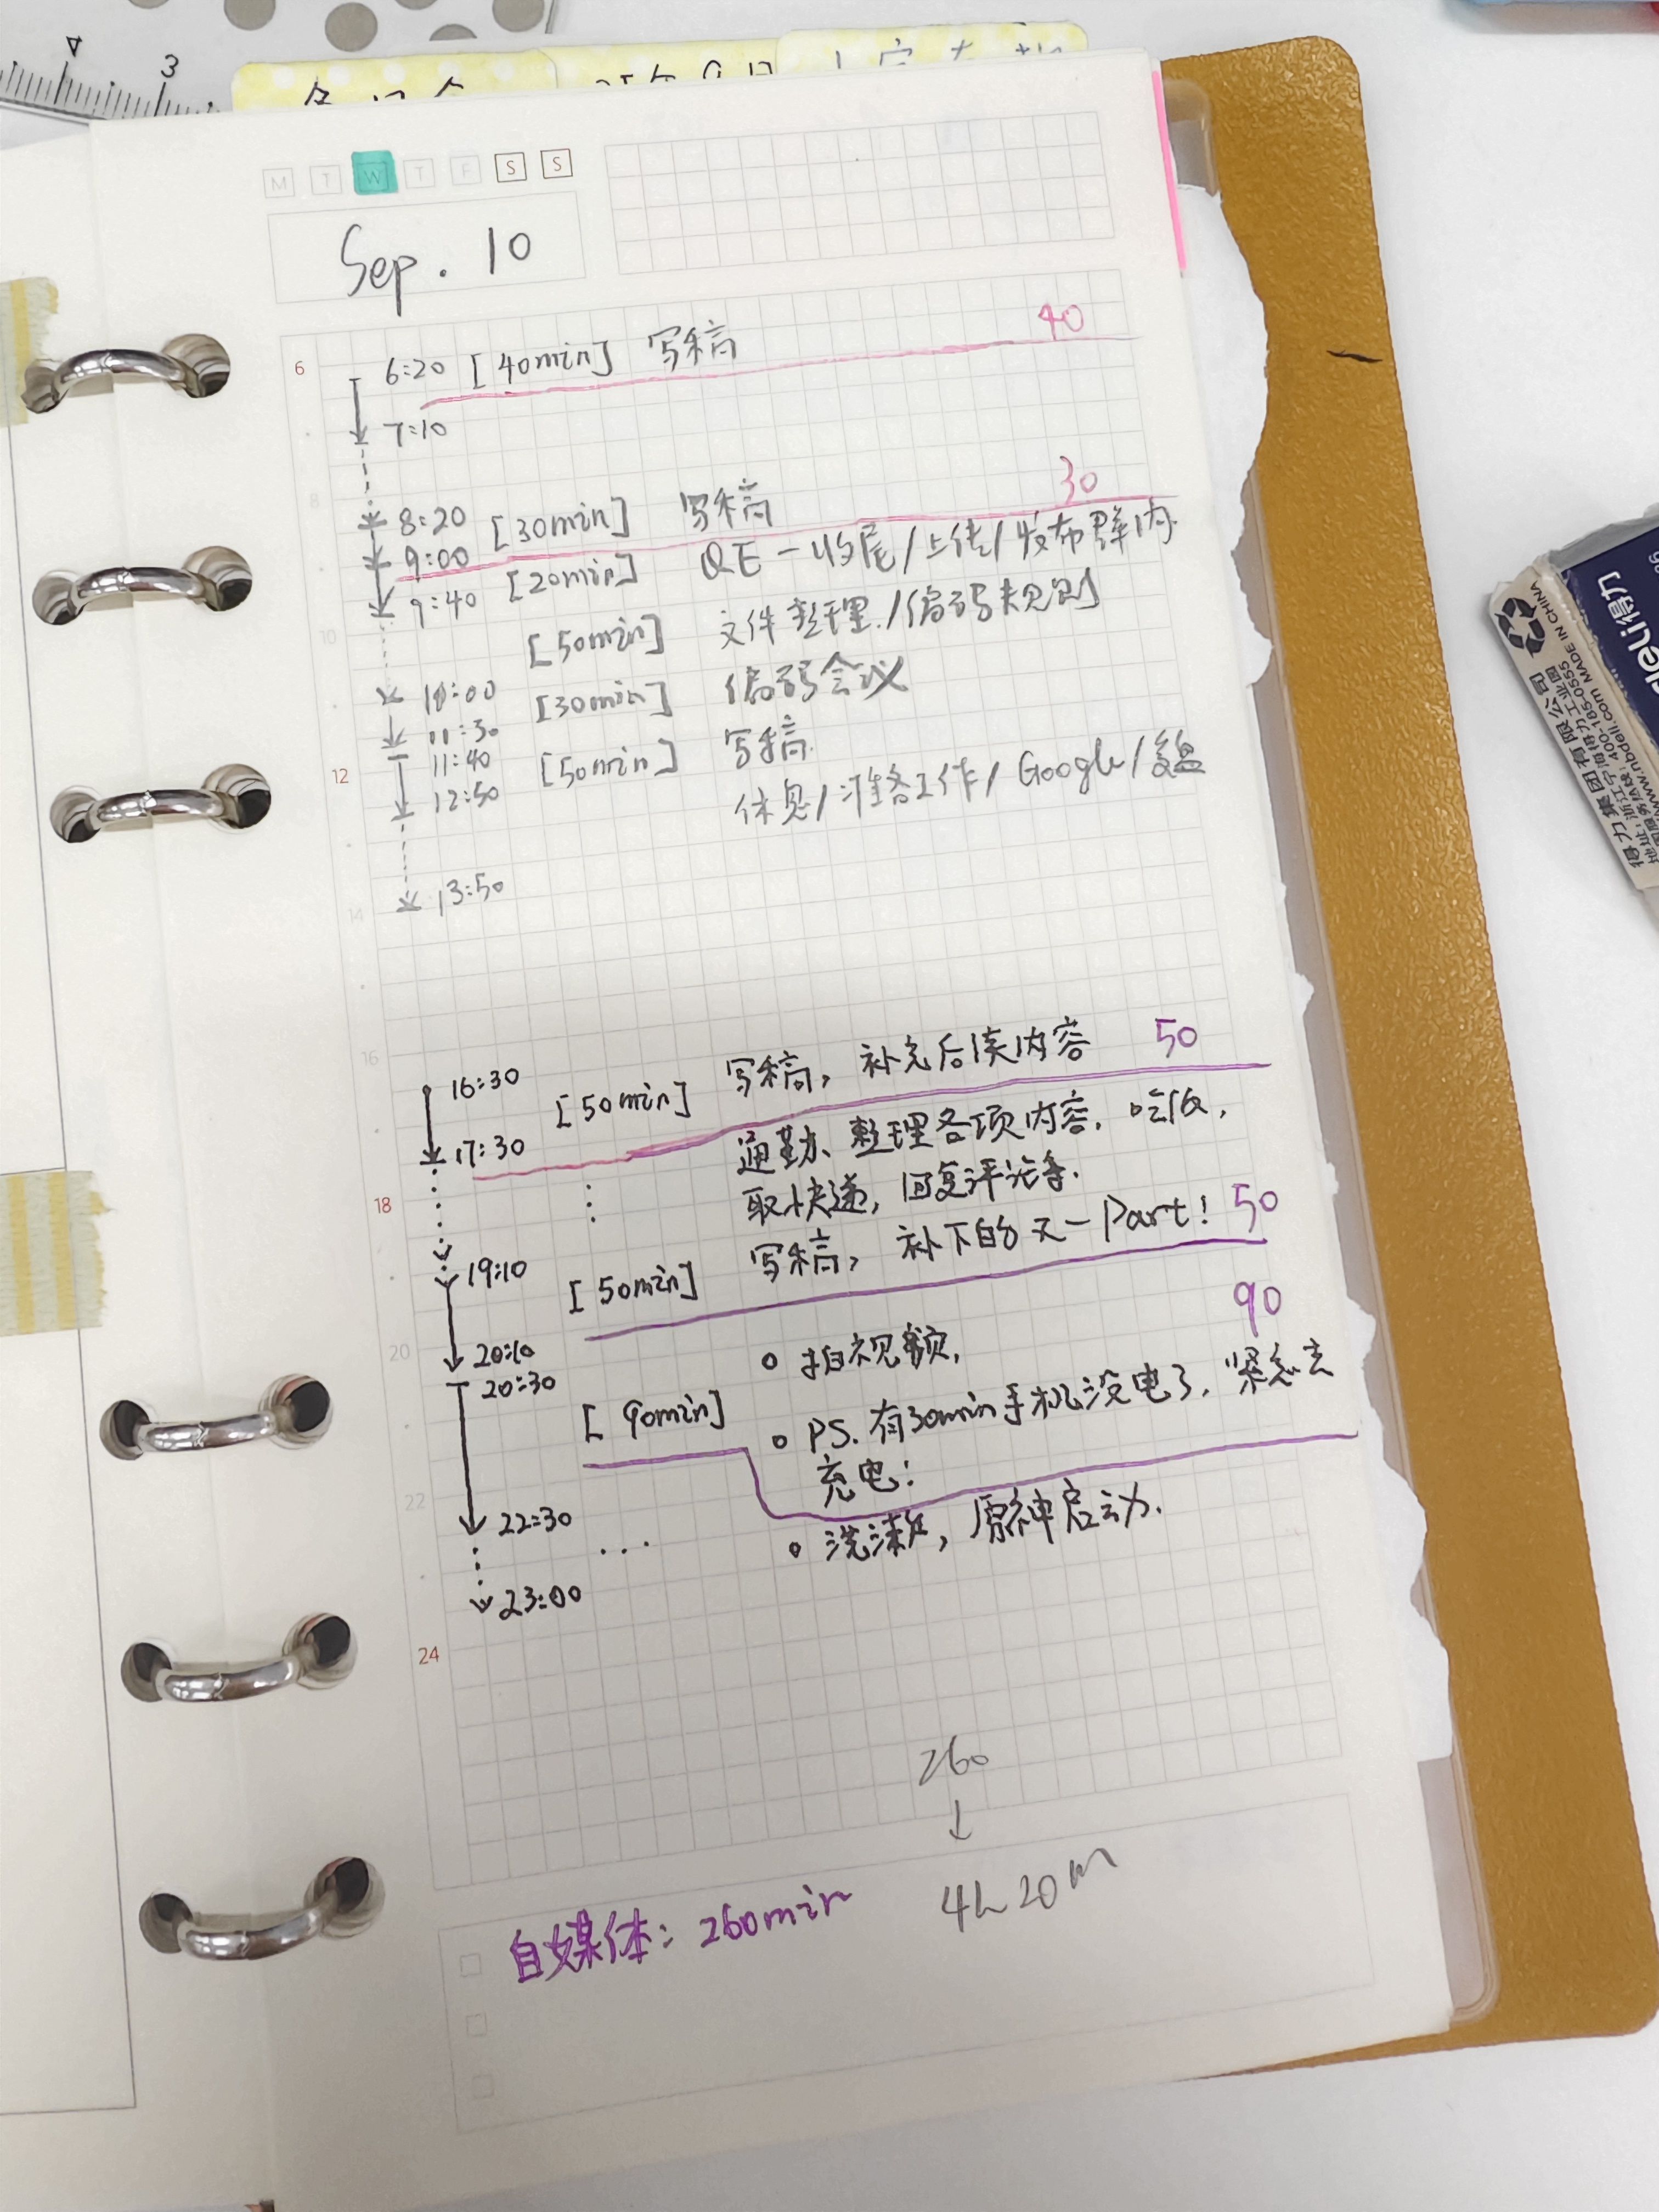 4
3
M T W T F S S
Sep. 10
6
6:20 [40min] 写稿 40
7:10
8
8:20 [30min] 写稿 30
9:00 [20min] QE-收尾/上传/发布群内
9:40
10
[50min] 文件整理/编码规则
[30min] 编码会议
11:30
11:40 [50min] 写稿
12
12:50 休息/准备工作/Google/复盘
13:50
14
16
16:30 [50min] 写稿, 补充后续内容 50
17:30 通勤、整理各项内容, 吃饭,
18
取快递, 回复评论等.
19:10 [50min] 写稿, 补下的又一Part! 50
20
20:10
20:30 [90min] 90
• 拍视频,
• PS. 有30min手机没电了, 紧急去
充电!
22
22:30 ... • 洗漱, 原神启动.
23:00
24
260
↓
4h 20m
自媒体: 260min
deli得力
MADE IN CHINA